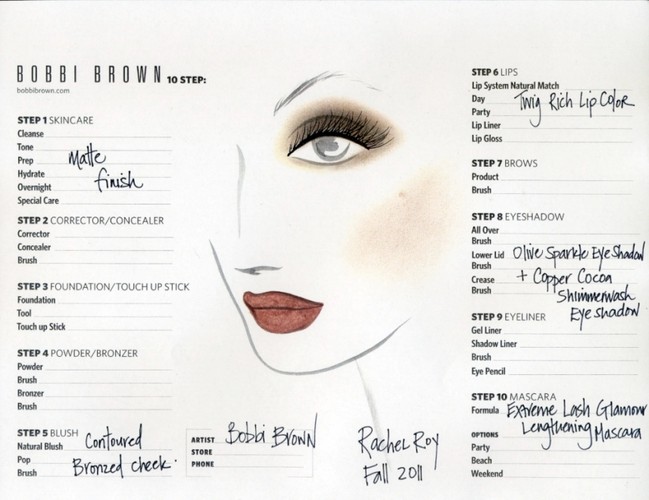 BOBBI BROWN 10 STEP:
bobbibrown.com
STEP 1 SKINCARE
Cleanse
Tone
Prep Matte
Hydrate finish
Overnight
Special Care
STEP 2 CORRECTOR/CONCEALER
Corrector
Concealer
Brush
STEP 3 FOUNDATION/TOUCH UP STICK
Foundation
Tool
Touch up Stick
STEP 4 POWDER/BRONZER
Powder
Brush
Bronzer
Brush
STEP 5 BLUSH
Natural Blush Contoured
Pop Bronzed cheek.
Brush
ARTIST Bobbi Brown
STORE
PHONE
Rachel Roy
Fall 2011
STEP 6 LIPS
Lip System Natural Match
Day Twig Rich Lip Color
Party
Lip Liner
Lip Gloss
STEP 7 BROWS
Product
Brush
STEP 8 EYESHADOW
All Over
Brush
Lower Lid Olive Sparkle Eye Shadow
Brush
Crease + Copper Cocoa
Brush Shimmerwash
Eye shadow
STEP 9 EYELINER
Gel Liner
Shadow Liner
Brush
Eye Pencil
STEP 10 MASCARA
Formula Extreme Lash Glamour
Lengthening Mascara
OPTIONS
Party
Beach
Weekend